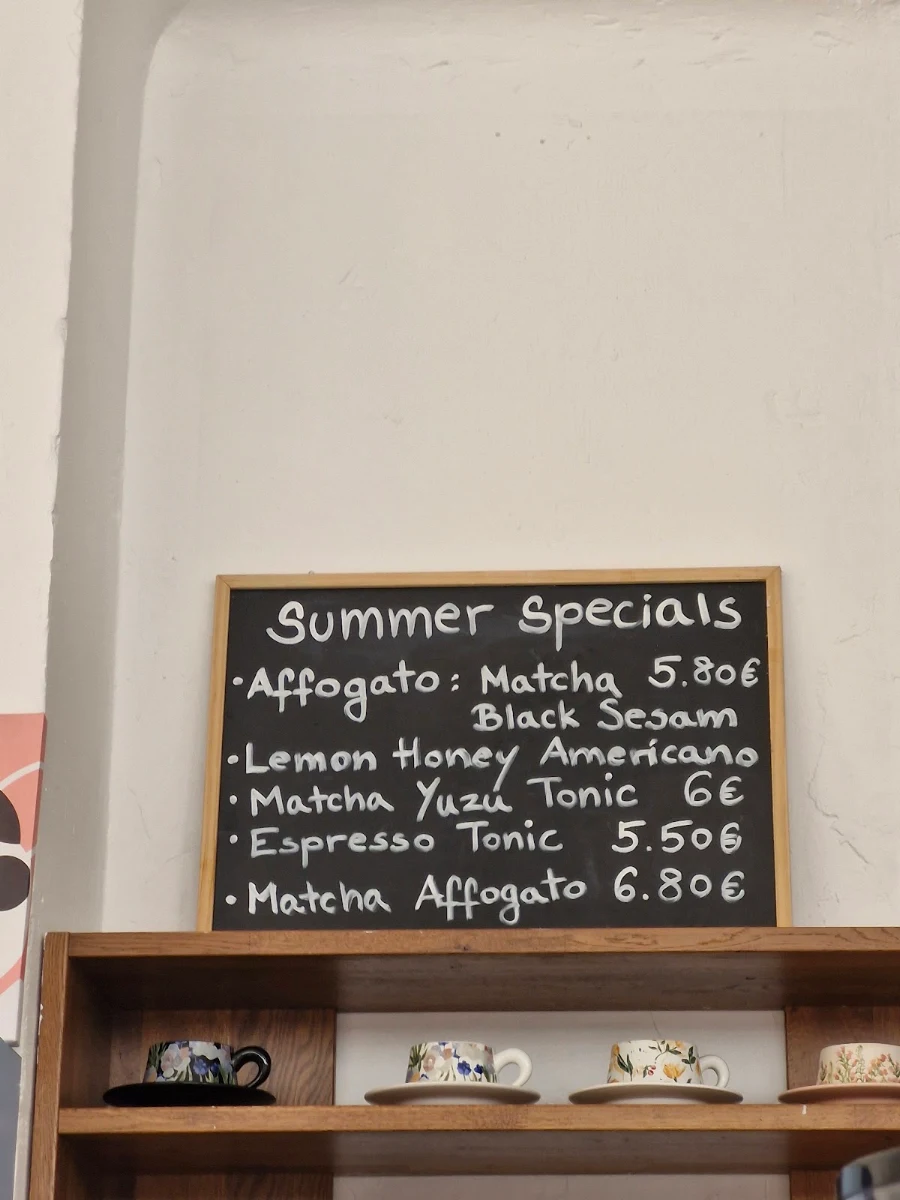 Summer Specials
• Affogato: Matcha 5.80€
Black Sesam
• Lemon Honey Americano
• Matcha Yuzu Tonic 6€
• Espresso Tonic 5.50€
• Matcha Affogato 6.80€